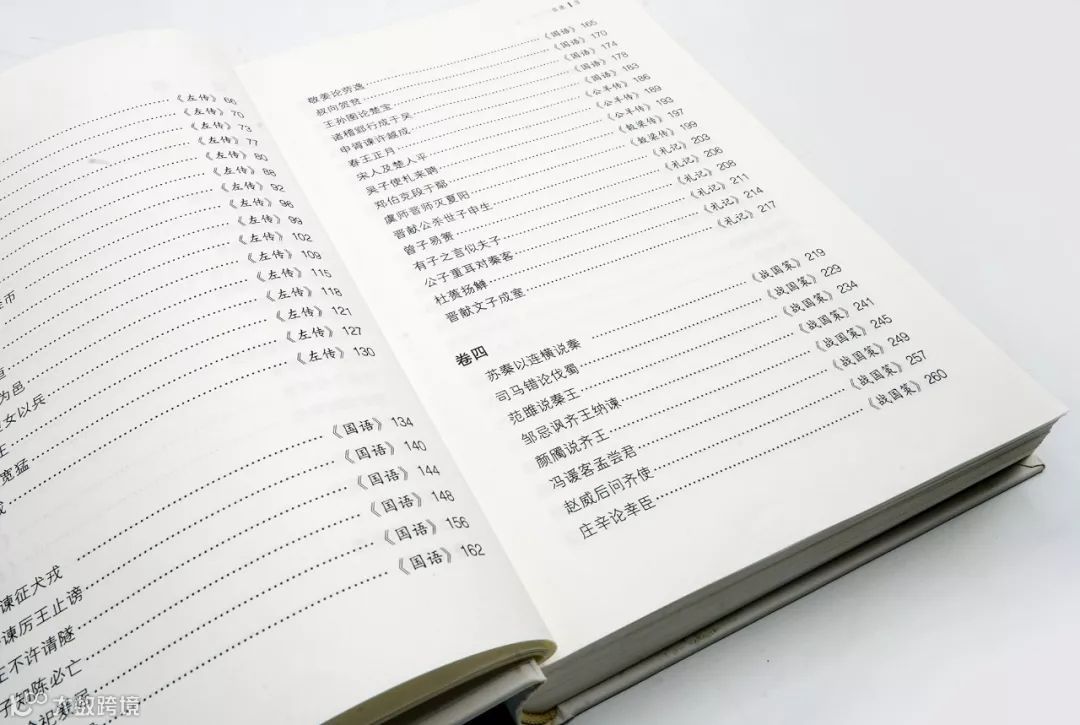 《左传》66
《左传》70
《左传》73
《左传》77
《左传》80
《左传》88
《左传》92
币《左传》96
《左传》99
《左传》102
《左传》109
为邑《左传》115
女以兵《左传》118
王《左传》121
宽猛《左传》127
《左传》130
谏征犬戎《国语》134
谏厉王止谤《国语》140
王不许请隧《国语》144
子知陈必亡《国语》148
《国语》156
《国语》162
敬姜论劳逸《国语》165
叔向贺贫《国语》170
王孙圉论楚宝《国语》174
诸稽郢行成于吴《国语》178
申胥谏许越成《国语》183
春王正月《公羊传》186
宋人及楚人平《公羊传》189
吴子使札来聘《公羊传》193
郑伯克段于鄢《穀梁传》197
虞师晋师灭夏阳《穀梁传》199
晋献公杀世子申生《礼记》203
曾子易箦《礼记》206
有子之言似夫子《礼记》208
公子重耳对秦客《礼记》211
杜蒉扬觯《礼记》214
晋献文子成室《礼记》217
卷四
苏秦以连横说秦《战国策》219
司马错论伐蜀《战国策》229
范雎说秦王《战国策》234
邹忌讽齐王纳谏《战国策》241
颜斶说齐王《战国策》245
冯谖客孟尝君《战国策》249
赵威后问齐使《战国策》257
庄辛论幸臣《战国策》260
大数跨境